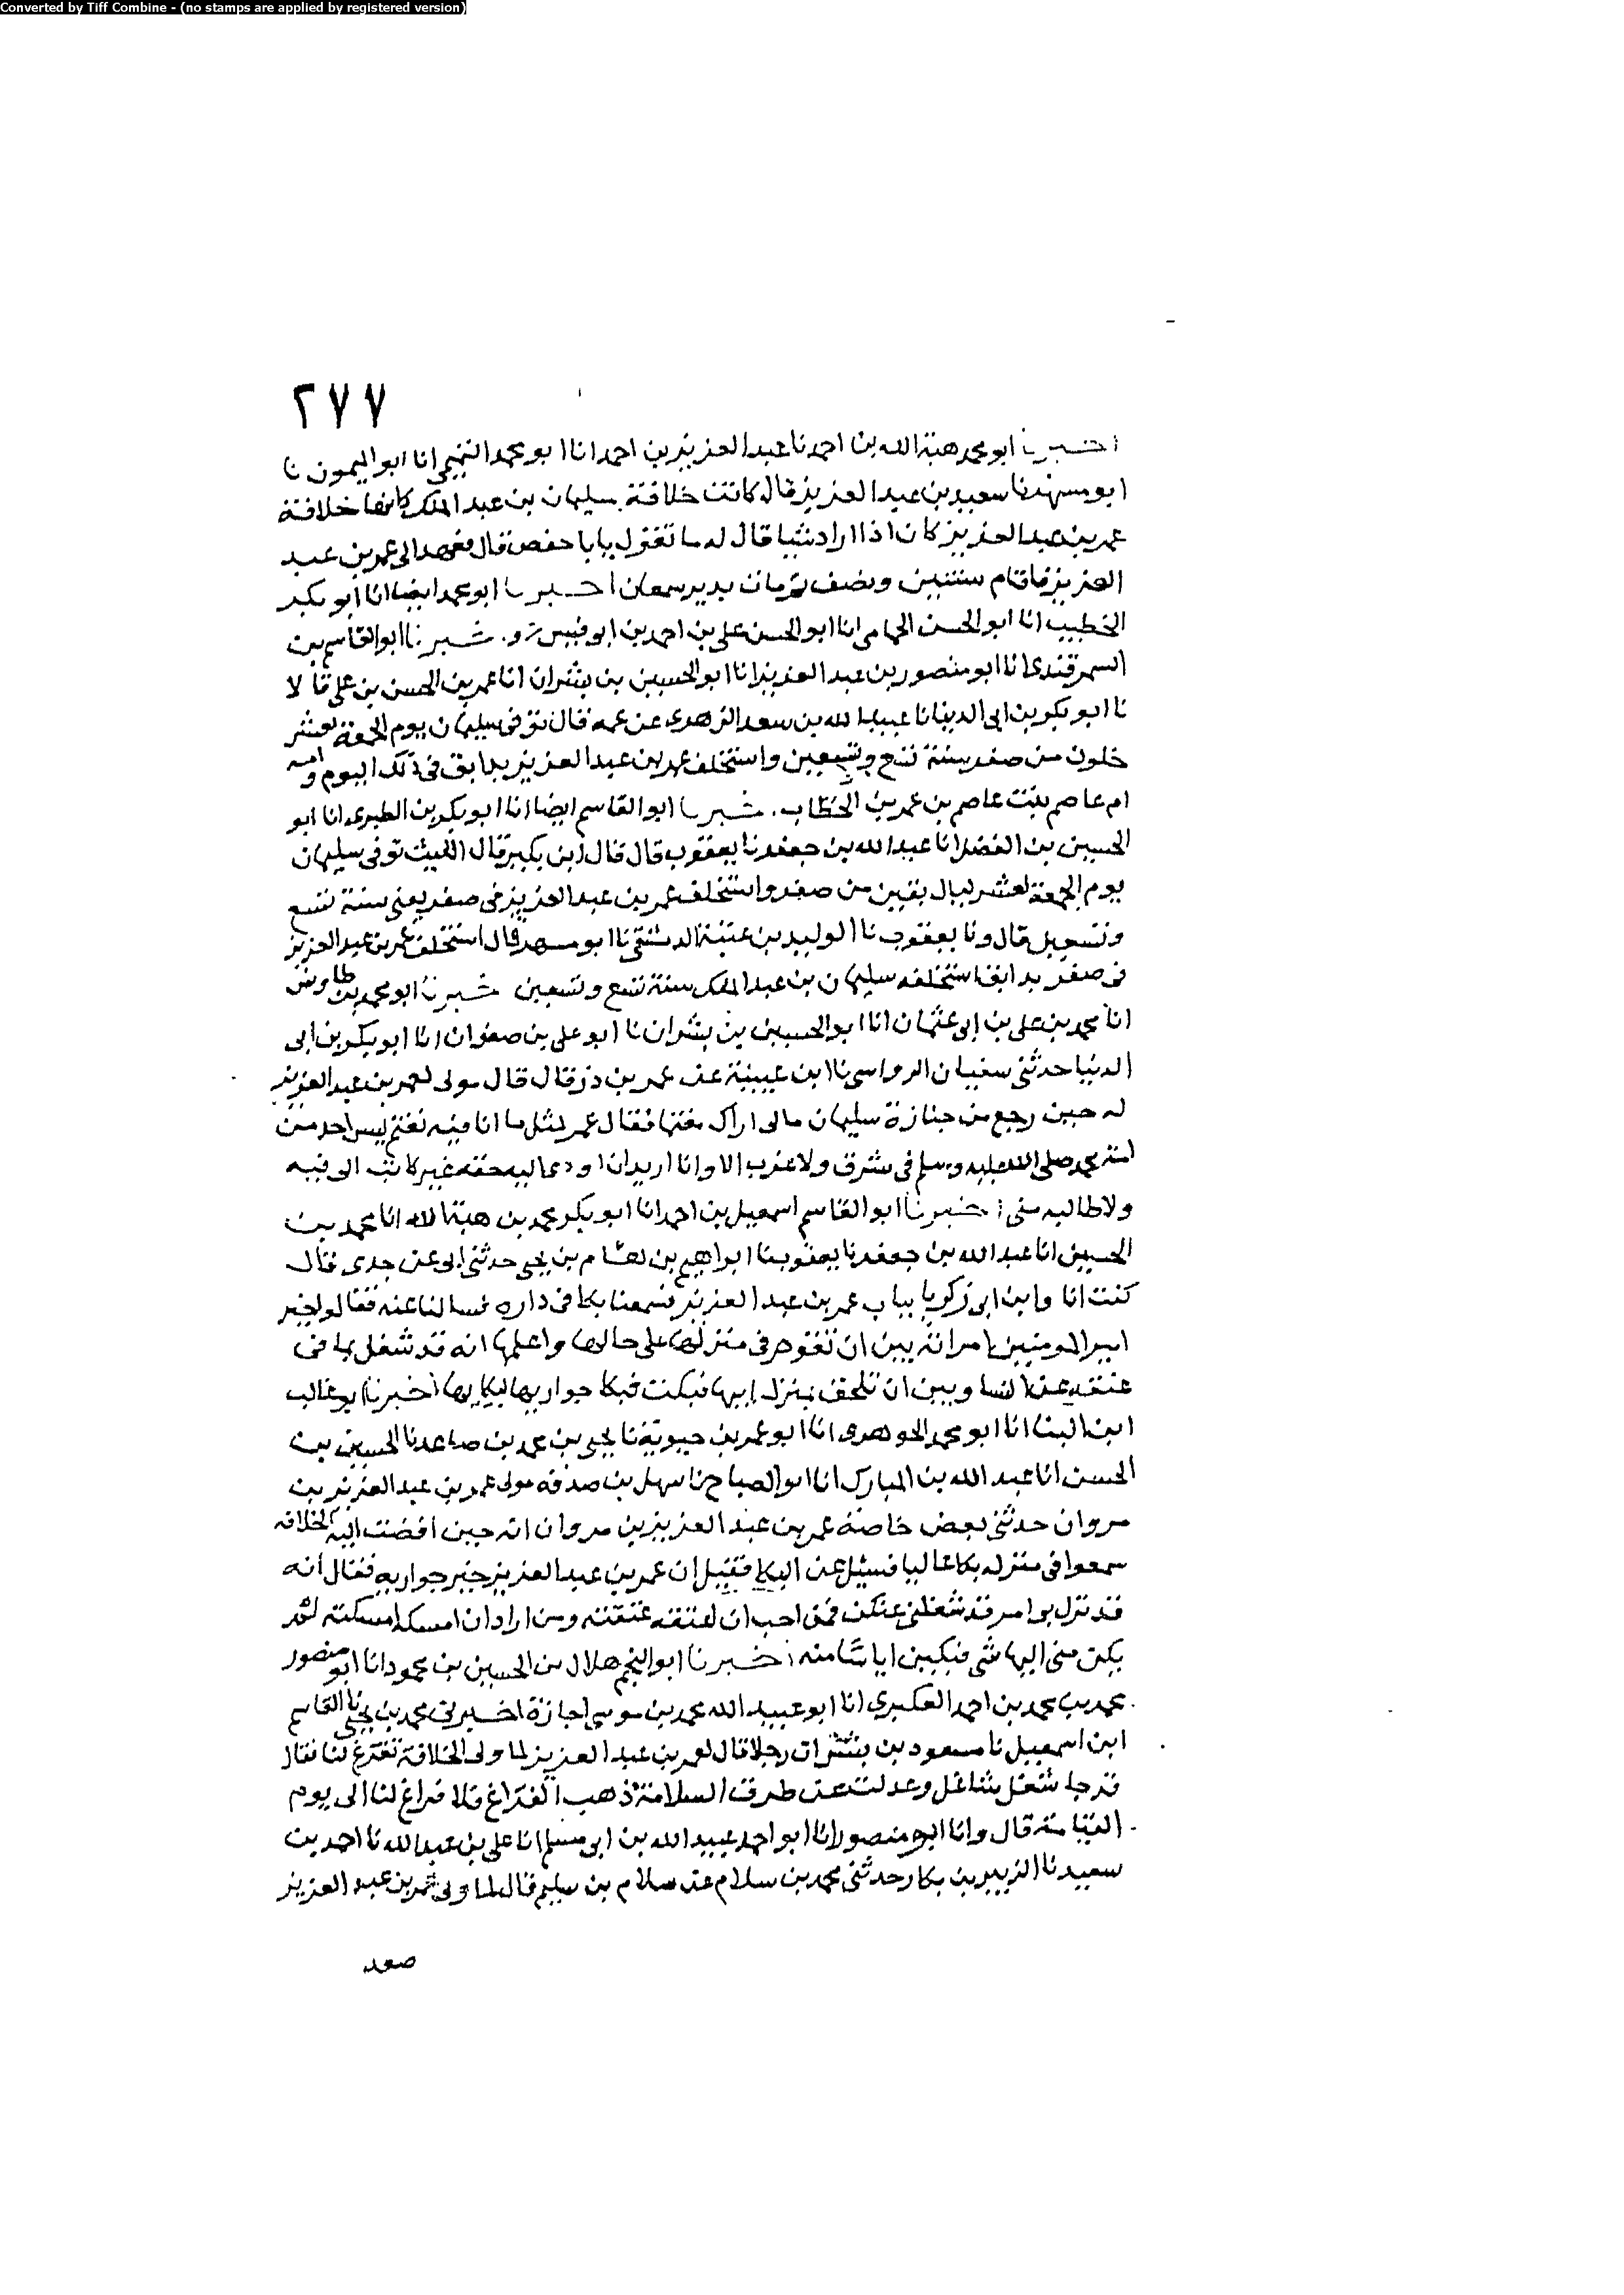 Converted by Tiff Combine - (no stamps are applied by registered version)
٢٧٧
اخبرنا ابو محمد هبة الله بن احمد نا عبد العزيز بن احمد انا ابو محمد التميمي انا ابو الميمون نا
ابو مسهر نا سعيد بن عبد العزيز قال كانت خلافة سليمان بن عبد الملك كانها خلافة
عمر بن عبد العزيز كان اذا اراد شيا قال له ما تقول يابا حفص قال فعهد الى عمر بن عبد
العزيز فاقام سنتين ونصف ثم مات بدير سمعان اخبرنا ابو محمد ايضا انا ابو بكر
الخطيب انا ابو الحسن الحمامي انا ابو الحسن علي بن احمد بن ابو قيس ح و خبرنا ابو القاسم بن
السمرقندي انا ابو منصور بن عبد العزيز انا ابو الحسين بن بشران انا عمر بن الحسن بن علي قالا
نا ابو بكر بن ابي الدنيا نا عبيد الله بن سعد الزهري عن عمه قال توفي سليمان يوم الجمعة لعشر
خلون من صفر سنة تسع وتسعين واستخلف عمر بن عبد العزيز بدابق في ذلك اليوم وامه
ام عاصم بنت عاصم بن عمر بن الخطاب . خبرنا ابو القاسم ايضا انا ابو بكر بن الطبري انا ابو
الحسين بن الفضل انا عبد الله بن جعفر نا يعقوب قال قال ابن بكير قال الليث توفي سليمان
يوم الجمعة لعشر ليال بقين من صفر واستخلف عمر بن عبد العزيز في صفر يعني سنة تسع
وتسعين قال ونا يعقوب نا الوليد بن عتبة الدمشقي نا ابو مسهر قال استخلف عمر بن عبد العزيز
في صفر بدابق استخلفه سليمان بن عبد الملك سنة تسع وتسعين خبرنا ابو محمد بن طاوس
انا محمد بن علي بن ابي عثمان انا ابو الحسين بن بشران نا ابو علي بن صفوان انا ابو بكر بن ابي
الدنيا حدثني سفيان الرواسي نا ابن عيينة عن عمر بن ذر قال قال مولى لعمر بن عبد العزيز
له حين رجع من جنازة سليمان مالي اراك مغتما فقال عمر لمثل ما انا فيه نغتم ليس احد من
امة محمد صلى الله عليه وسلم في شرق ولا غرب الا وانا اريد ان اودى اليه حقه غير كاتب الى فيه
ولا طالبه مني اخبرنا ابو القاسم اسمعيل بن احمد انا ابو بكر محمد بن هبة الله انا محمد بن
الحسين انا عبد الله بن جعفر نا يعقوب نا ابراهيم بن هشام بن يحيى حدثني ابي عن جدي قال
كنت انا وابن ابي زكريا بباب عمر بن عبد العزيز فسمعنا بكا في داره فسالنا عنه فقالوا خير
امير المومنين امراته بين ان تقوم في منزلها على حالها واعلمها انه قد شغل بما في
عنقه عن النسا وبين ان تلحق بمنزل ابيها فبكت فبكا جواريها لبكايها اخبرنا ابو غالب
ابن البنا انا ابو محمد الجوهري انا ابو عمر بن حيوية نا يحيى بن محمد بن صاعد نا الحسين بن
الحسن انا عبد الله بن المبارك انا ابو الصباح نا سهل بن صدقة مولى عمر بن عبد العزيز بن
مروان حدثني بعض خاصة عمر بن عبد العزيز بن مروان انه حين افضت اليه الخلافه
سمعوا في منزله بكا عاليا فسئل عن البكا فقيل ان عمر بن عبد العزيز خير جواريه فقال انه
قد نزل بي امر قد شغلني عنكن فمن احب ان اعتقه عتقته ومن اراد ان امسكه امسكته لم
يكن مني اليها شي فبكين اياسا منه اخبرنا ابو النجم هلال بن الحسين بن محمود انا ابو منصور
محمد بن محمد بن احمد العكبري انا ابو عبيد الله محمد بن موسى اجازة اخبرني محمد بن يحيى نا القاسم
ابن اسمعيل نا مسعود بن بشر ان رجلا قال لعمر بن عبد العزيز لما ولي الخلافة تفرغ لنا فقال
قد جا شغل شاغل وعدلت عن طرق السلامة ذهب الفراغ فلا فراغ لنا الى يوم
القيامة قال وانا ابو منصور انا ابو احمد عبيد الله بن ابي مسلم انا علي بن عبد الله نا احمد بن
سعيد نا الزبير بن بكار حدثني محمد بن سلام عن سلام بن سليم قال لما ولي عمر بن عبد العزيز
صعد